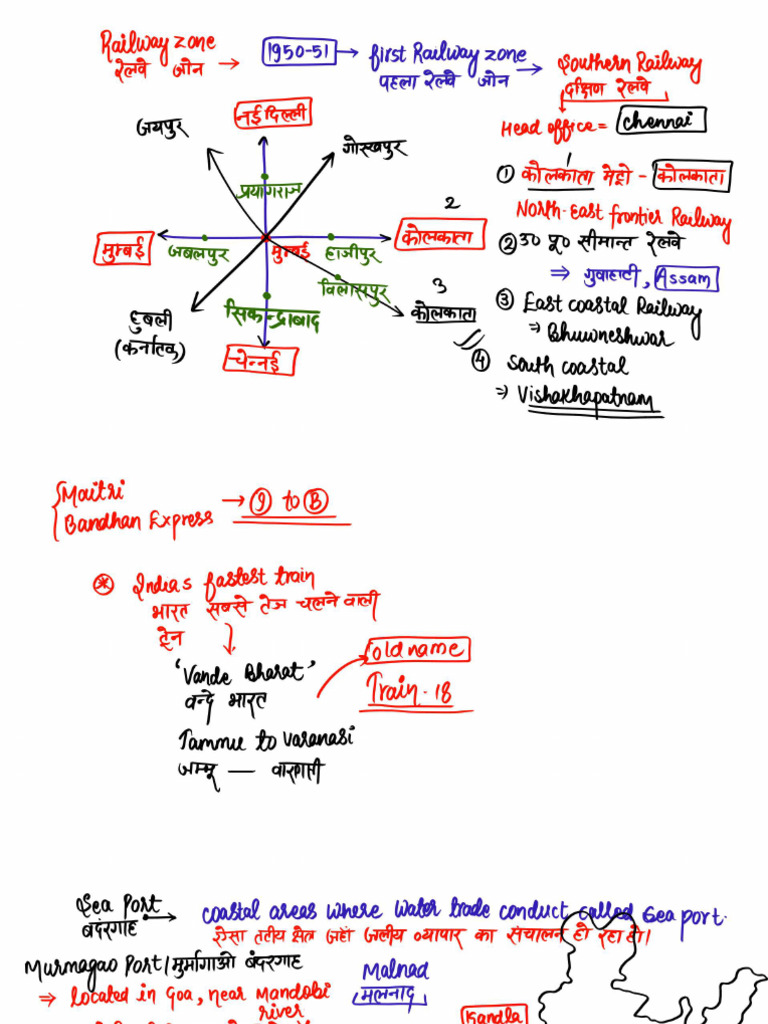 Railway zone → 1950-51 → first Railway zone → Southern Railway
रेलवे जोन पहला रेलवे जोन दक्षिण रेलवे
Head office = Chennai
नई दिल्ली
जयपुर
गोरखपुर
प्रयागराज
मुम्बई
जबलपुर
मुम्बई
हाजीपुर
2
कोलकाता
विलासपुर
3
कोलकाता
हुबली
(कर्नाटक)
सिकन्द्राबाद
चेन्नई
① कोलकाता मेट्रो - कोलकाता
North-East frontier Railway
② उ० पू० सीमान्त रेलवे
⇒ गुवाहाटी, Assam
③ East coastal Railway
⇒ Bhuwneshwar
④ South coastal
⇒ Vishakhapatnam
Maitri
Bandhan Express → I to B
* India's fastest train
भारत सबसे तेज चलने वाली
ट्रेन
'Vande Bharat'
वन्दे भारत
old name
Train-18
Jammu to Varanasi
जम्मू —
Sea Port → coastal areas where water trade conduct called Sea port.
बंदरगाह ऐसा तटीय क्षेत्र जहाँ जलीय व्यापार का संचालन हो रहा हो।
Murmagao Port/मुर्मागाओ बंदरगाह
Malnad
मलनाद
⇒ located in Goa, near Mandobi
river
Kandla